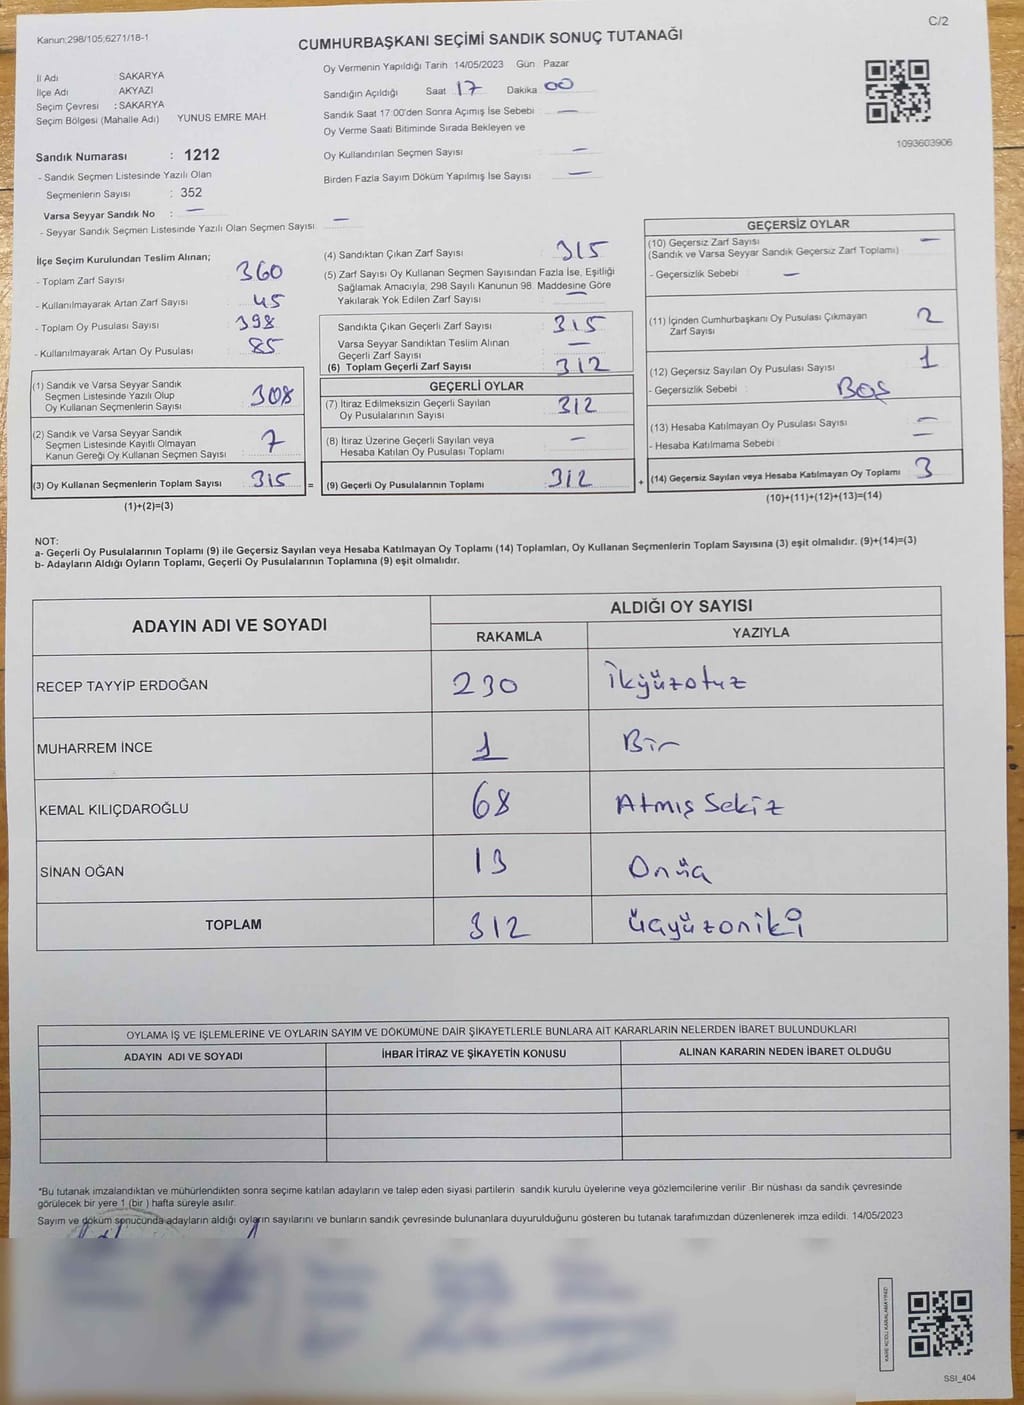 C/2
Kanun:298/105;6271/18-1
CUMHURBAŞKANI SEÇİMİ SANDIK SONUÇ TUTANAĞI
İl Adı SAKARYA
İlçe Adı AKYAZI
Seçim Çevresi : SAKARYA
Seçim Bölgesi (Mahalle Adı) YUNUS EMRE MAH.
Oy Vermenin Yapıldığı Tarih 14/05/2023 Gün Pazar
Sandığın Açıldığı Saat 17 Dakika 00
Sandık Saat 17 00'den Sonra Açımış İse Sebebi —
Oy Verme Saati Bitiminde Sırada Bekleyen ve
Oy Kullandırılan Seçmen Sayısı —
Birden Fazla Sayım Döküm Yapılmış İse Sayısı —
1093603906
Sandık Numarası : 1212
- Sandık Seçmen Listesinde Yazılı Olan
Seçmenlerin Sayısı : 352
Varsa Seyyar Sandık No : —
- Seyyar Sandık Seçmen Listesinde Yazılı Olan Seçmen Sayısı —
İlçe Seçim Kurulundan Teslim Alınan;
- Toplam Zarf Sayısı 360
- Kullanılmayarak Artan Zarf Sayısı 45
- Toplam Oy Pusulası Sayısı 398
- Kullanılmayarak Artan Oy Pusulası 85
(1) Sandık ve Varsa Seyyar Sandık
Seçmen Listesinde Yazılı Olup
Oy Kullanan Seçmenlerin Sayısı 308
(2) Sandık ve Varsa Seyyar Sandık
Seçmen Listesinde Kayıtlı Olmayan
Kanun Gereği Oy Kullanan Seçmen Sayısı 7
(3) Oy Kullanan Seçmenlerin Toplam Sayısı 315 =
(1)+(2)=(3)
(4) Sandıktan Çıkan Zarf Sayısı 315
(5) Zarf Sayısı Oy Kullanan Seçmen Sayısından Fazla İse, Eşitliği
Sağlamak Amacıyla, 298 Sayılı Kanunun 98. Maddesine Göre
Yakılarak Yok Edilen Zarf Sayısı —
Sandıkta Çıkan Geçerli Zarf Sayısı 315
Varsa Seyyar Sandıktan Teslim Alınan
Geçerli Zarf Sayısı —
(6) Toplam Geçerli Zarf Sayısı 312
GEÇERLİ OYLAR
(7) İtiraz Edilmeksizin Geçerli Sayılan
Oy Pusulalarının Sayısı 312
(8) İtiraz Üzerine Geçerli Sayılan veya
Hesaba Katılan Oy Pusulası Toplamı —
(9) Geçerli Oy Pusulalarının Toplamı 312 +
GEÇERSİZ OYLAR
(10) Geçersiz Zarf Sayısı —
(Sandık ve Varsa Seyyar Sandık Geçersiz Zarf Toplamı)
- Geçersizlik Sebebi —
(11) İçinden Cumhurbaşkanı Oy Pusulası Çıkmayan
Zarf Sayısı 2
(12) Geçersiz Sayılan Oy Pusulası Sayısı 1
- Geçersizlik Sebebi : Boş
(13) Hesaba Katılmayan Oy Pusulası Sayısı —
- Hesaba Katılmama Sebebi —
(14) Geçersiz Sayılan veya Hesaba Katılmayan Oy Toplamı 3
(10)+(11)+(12)+(13)=(14)
NOT:
a- Geçerli Oy Pusulalarının Toplamı (9) ile Geçersiz Sayılan veya Hesaba Katılmayan Oy Toplamı (14) Toplamları, Oy Kullanan Seçmenlerin Toplam Sayısına (3) eşit olmalıdır. (9)+(14)=(3)
b- Adayların Aldığı Oyların Toplamı, Geçerli Oy Pusulalarının Toplamına (9) eşit olmalıdır.
ADAYIN ADI VE SOYADI
ALDIĞI OY SAYISI
RAKAMLA YAZIYLA
RECEP TAYYİP ERDOĞAN 230 İkiyüzotuz
MUHARREM İNCE 1 Bir
KEMAL KILIÇDAROĞLU 68 Atmış Sekiz
SİNAN OĞAN 13 Onüç
TOPLAM 312 Üçyüzoniki
OYLAMA İŞ VE İŞLEMLERİNE VE OYLARIN SAYIM VE DÖKÜMÜNE DAİR ŞİKAYETLERLE BUNLARA AİT KARARLARIN NELERDEN İBARET BULUNDUKLARI
ADAYIN ADI VE SOYADI İHBAR İTİRAZ VE ŞİKAYETİN KONUSU ALINAN KARARIN NEDEN İBARET OLDUĞU
*Bu tutanak imzalandıktan ve mühürlendikten sonra seçime katılan adayların ve talep eden siyasi partilerin sandık kurulu üyelerine veya gözlemcilerine verilir .Bir nüshası da sandık çevresinde
görülecek bir yere 1 (bir ) hafta süreyle asılır.
Sayım ve döküm sonucunda adayların aldığı oyların sayılarını ve bunların sandık çevresinde bulunanlara duyurulduğunu gösteren bu tutanak tarafımızdan düzenlenerek imza edildi. 14/05/2023
KARE KODU KARALAMAYINIZ!
SSI_404